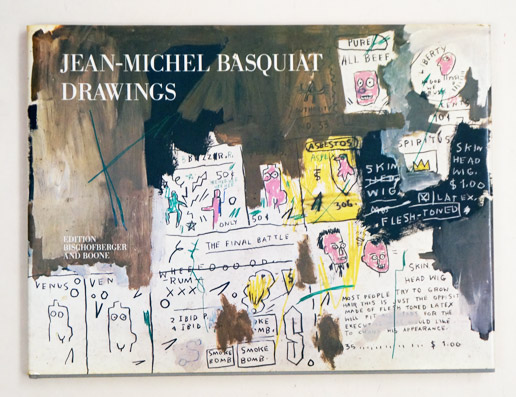 JEAN-MICHEL BASQUIAT
DRAWINGS
EDITION
BISCHOFBERGER
AND BOONE
PURE
ALL BEEF
ASBESTOS
$
306.
SPIRITUS
SKIN
WIG.
LATEX
FLESH-TONED
SKIN
HEAD
WIG.
$1.00
50¢
ONLY 50¢
THE FINAL BATTLE
RUM
XXX
2 IBID
4 IBID
SMOKE
BOMB
SMOKE
BOMB.
VENUS
VEN
SKIN
HEAD WIG
MOST PEOPLE TRY TO GROW
HAIR THIS IS JUST THE
MADE OF FLESH TONED LATEX
WILL FIT FOR THE
HIS APPEARANCE.
$ 1.00